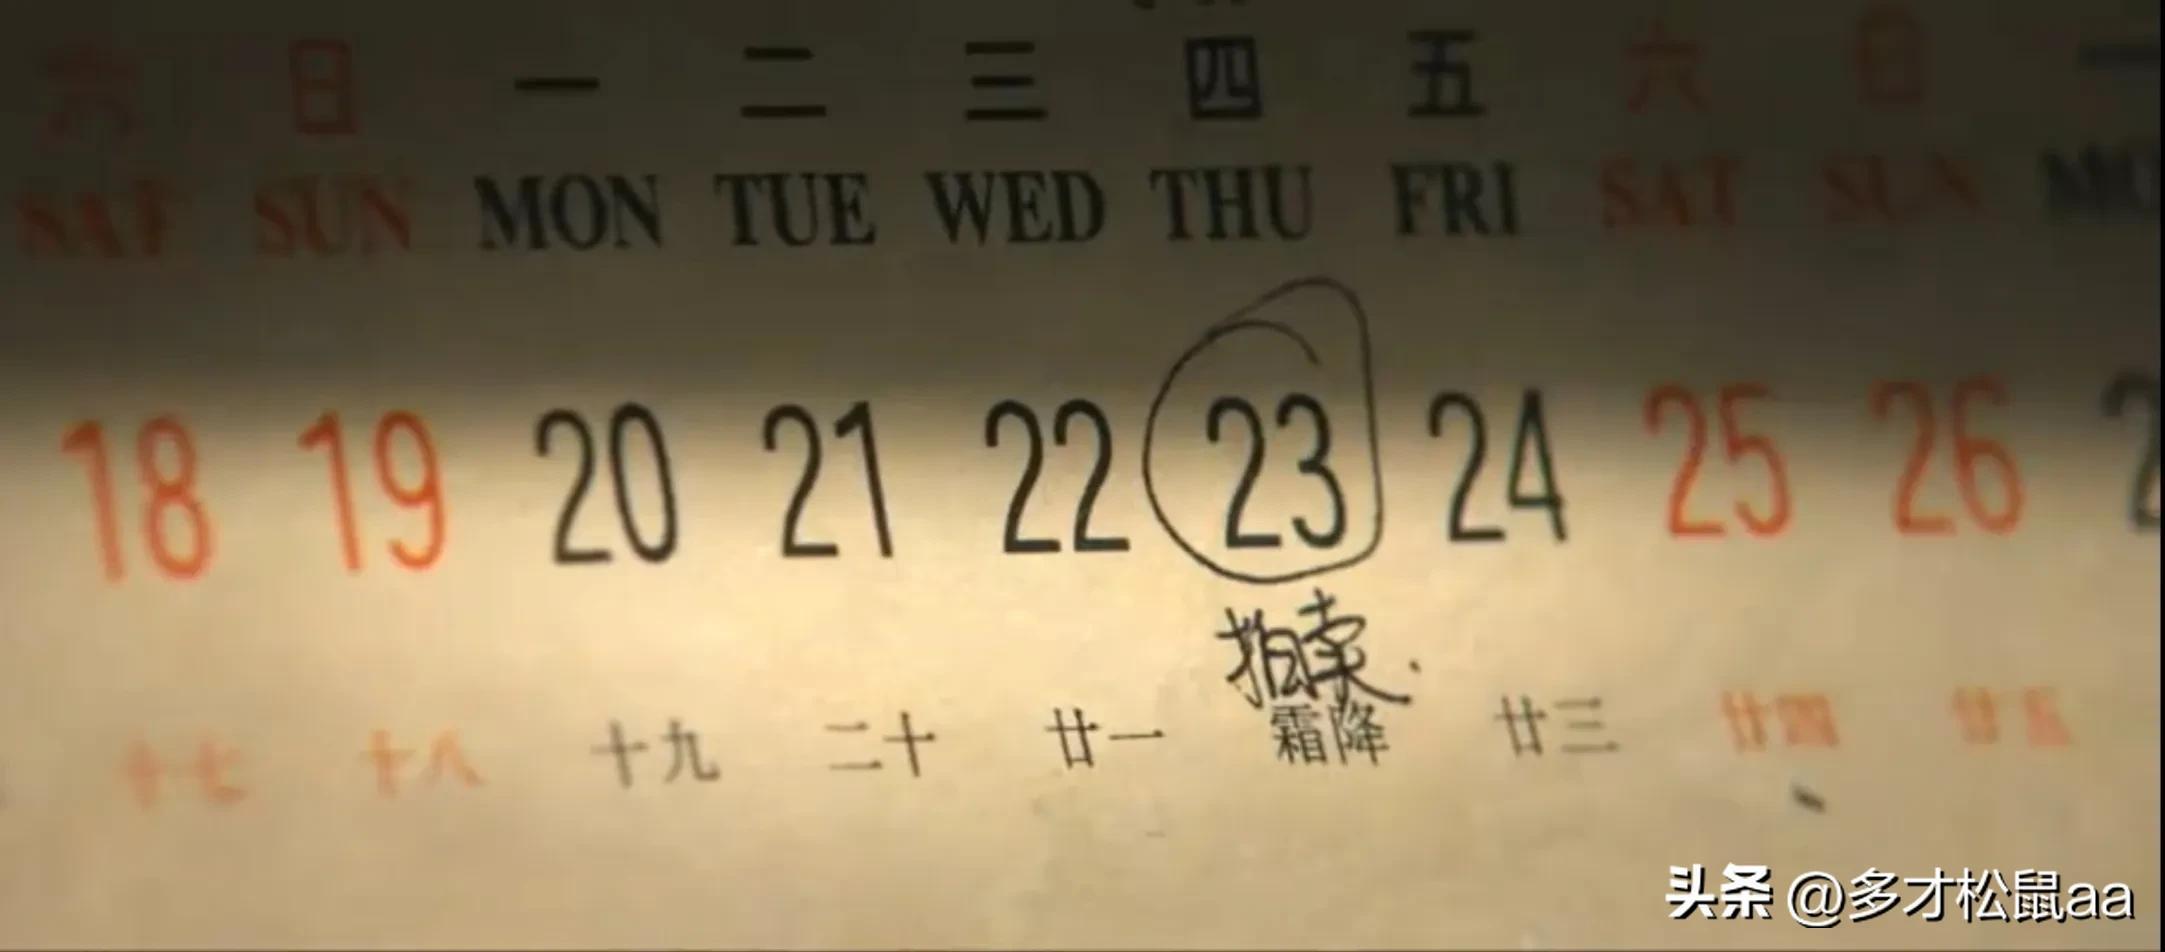 六 日 一 二 三 四 五 六 日 一
SAT SUN MON TUE WED THU FRI SAT SUN
18 19 20 21 22 23 24 25 26
拍卖.
十七 十八 十九 二十 廿一 霜降 廿三 廿四 廿五
头条 @多才松鼠aa